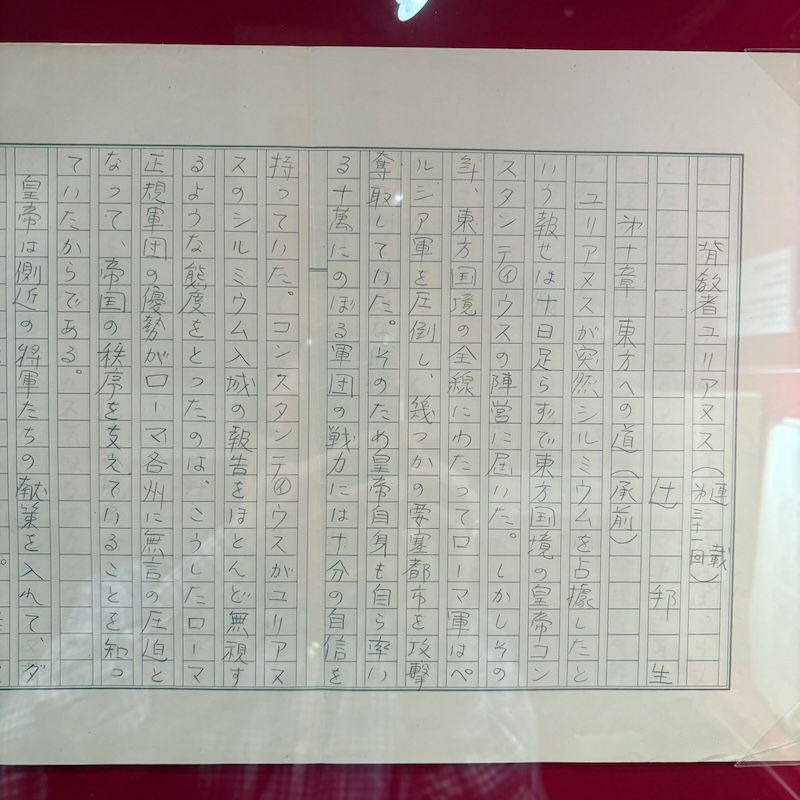 背教者ユリアヌス（連載第三十一回）
辻 邦生
第十章 東方への道（承前）
ユリアヌスが突然シルミウムを占據したと
いう報せは十日足らずで東方国境の皇帝コン
スタンティウスの陣営に届いた。しかしその
年、東方国境の全線にわたってローマ軍はペ
ルシア軍を圧倒し、幾つかの要塞都市を攻撃
奪取していた。そのため皇帝自身も自ら率い
る十萬にのぼる軍団の戦力には十分の自信を
持っていた。コンスタンティウスがユリアヌ
スのシルミウム入城の報告をほとんど無視す
るような態度をとったのは、こうしたローマ
正規軍団の優勢がローマ各州に無言の圧迫と
なって、帝国の秩序を支えていることを知っ
ていたからである。
皇帝は側近の将軍たちの献策を入れて、ダ